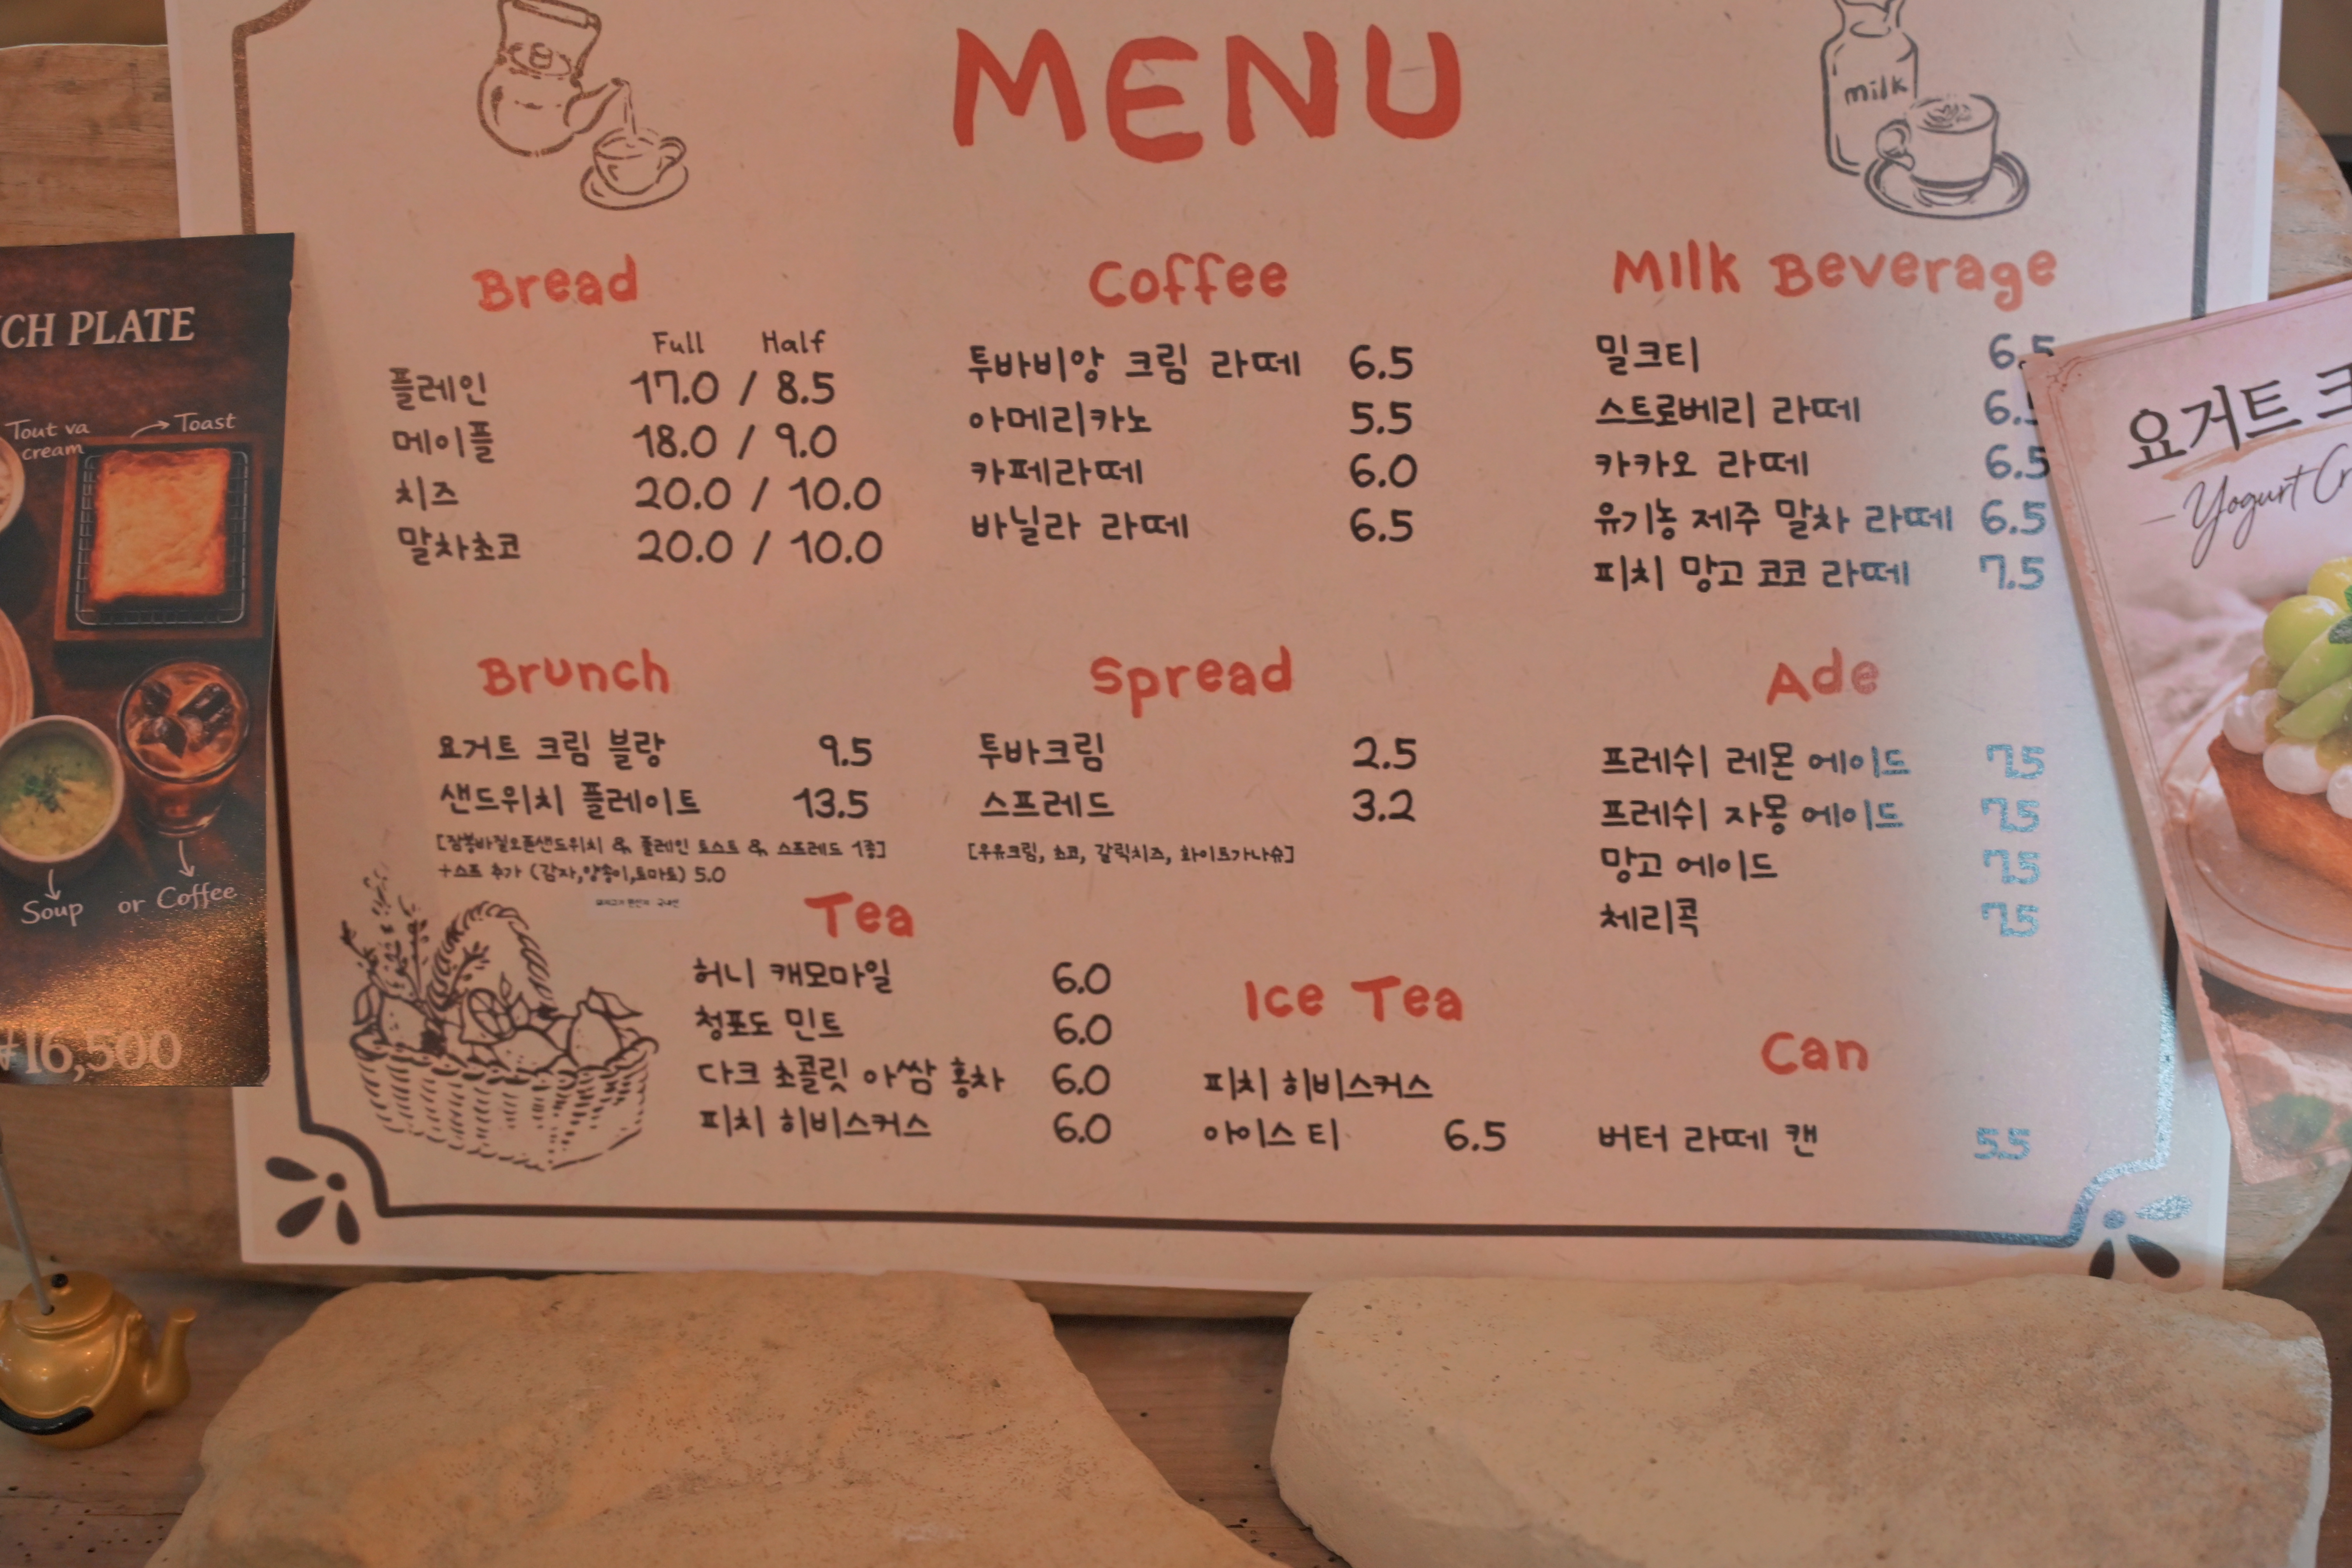 MENU
milk
Bread
Full Half
플레인 17.0 / 8.5
메이플 18.0 / 9.0
치즈 20.0 / 10.0
말차초코 20.0 / 10.0
Coffee
투바비앙 크림 라떼 6.5
아메리카노 5.5
카페라떼 6.0
바닐라 라떼 6.5
Milk Beverage
밀크티 6.5
스트로베리 라떼 6.5
카카오 라떼 6.5
유기농 제주 말차 라떼 6.5
피치 망고 코코 라떼 7.5
Brunch
요거트 크림 블랑 9.5
샌드위치 플레이트 13.5
[잠봉바질오픈샌드위치 & 플레인 토스트 & 스프레드 1종]
+스프 추가 (감자,양송이,토마토) 5.0
Spread
투바크림 2.5
스프레드 3.2
[우유크림, 초코, 갈릭치즈, 화이트가나슈]
Ade
프레쉬 레몬 에이드 7.5
프레쉬 자몽 에이드 7.5
망고 에이드 7.5
체리콕 7.5
Tea
허니 캐모마일 6.0
청포도 민트 6.0
다크 초콜릿 아쌈 홍차 6.0
피치 히비스커스 6.0
Ice Tea
피치 히비스커스
아이스 티 6.5
Can
버터 라떼 캔 5.5
CH PLATE
Tout va
cream
Toast
Soup or Coffee
₩16,500
요거트
Yogurt Cr